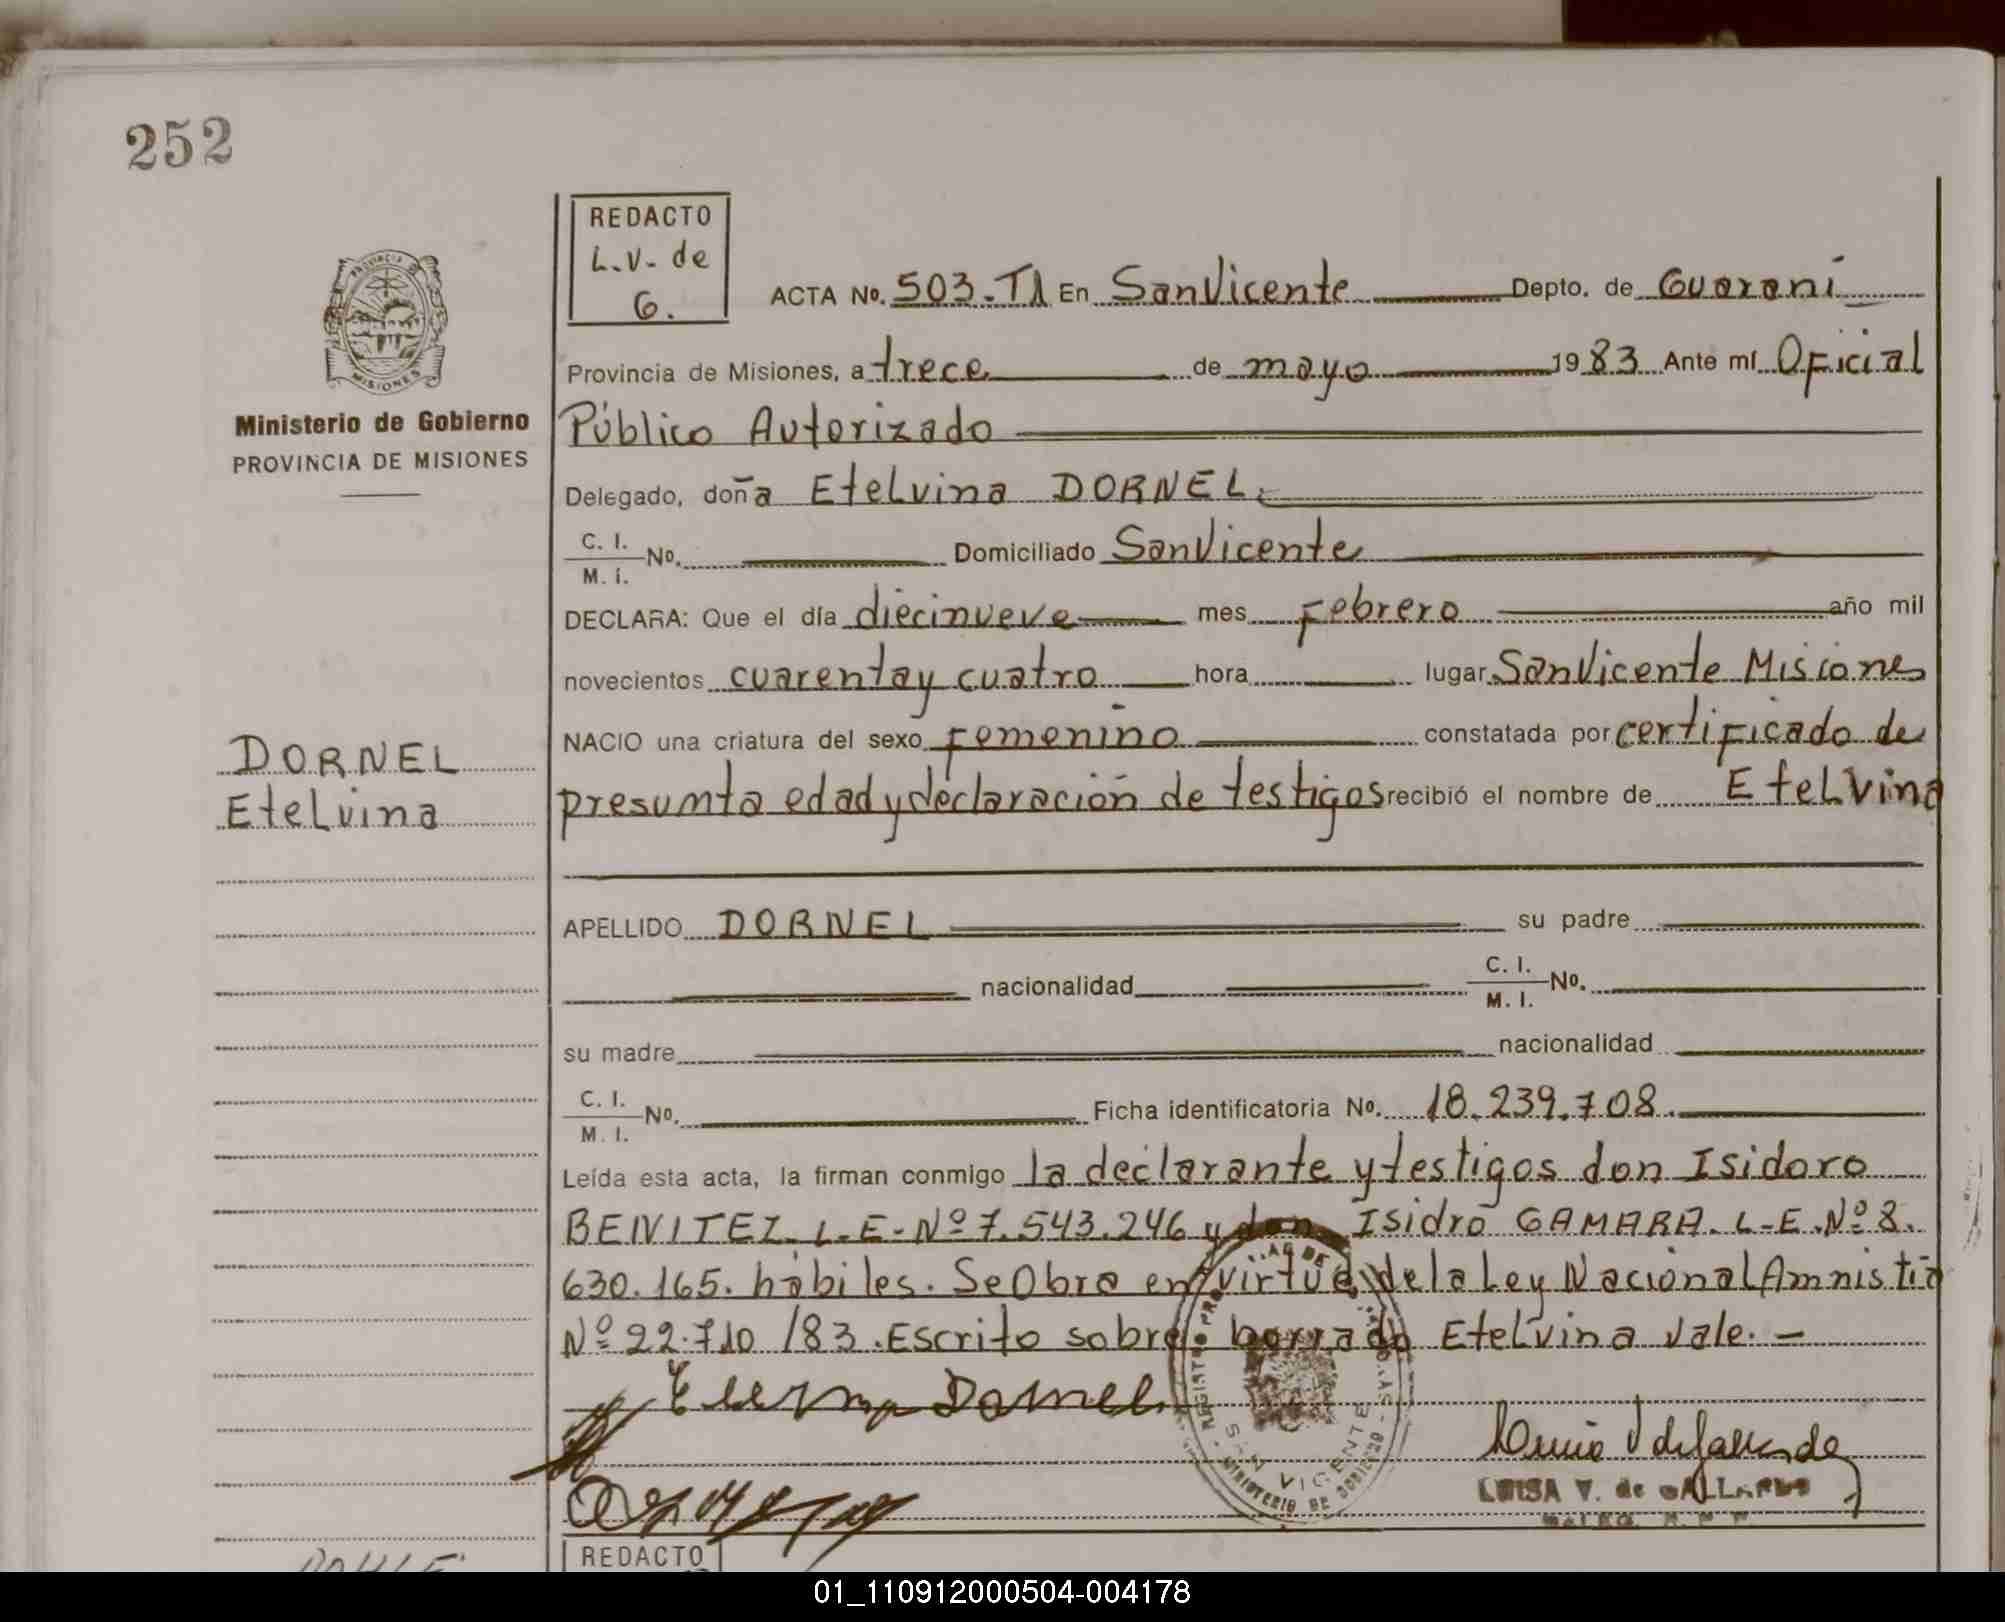 252
REDACTO
L.V. de
G.
ACTA No. 503-T1 En San Vicente Depto. de Guaraní
Provincia de Misiones, a trece de mayo 1983 Ante mí Oficial
Público Autorizado
PROVINCIA DE
MISIONES
Ministerio de Gobierno
PROVINCIA DE MISIONES
Delegado, doña Etelvina DORNEL.
C. I.
M. I. No. Domiciliado San Vicente
DECLARA: Que el día diecinueve mes Febrero año mil
novecientos cuarenta y cuatro hora lugar San Vicente Misiones
NACIO una criatura del sexo Femenino constatada por certificado de
DORNEL
Etelvina
presunta edad y declaración de testigos recibió el nombre de Etelvina
APELLIDO DORNEL su padre
nacionalidad C. I.
M. I. No.
su madre nacionalidad
C. I.
M. I. No. Ficha identificatoria No. 18.239.708.
Leída esta acta, la firman conmigo la declarante y testigos don Isidoro
BENITEZ. L.E. Nº 7.543.246 y don Isidro GAMARA. L-E. Nº 8.
630.165. hábiles. Se Obra en virtud de la Ley Nacional Amnistía
Nº 22.710 /83. Escrito sobre borrado Etelvina Vale. -
Etelvina Dornel
SAN VICENTE
MINISTERIO DE GOBIERNO
LUISA V. de GALLARDO
REDACTO
01_110912000504-004178